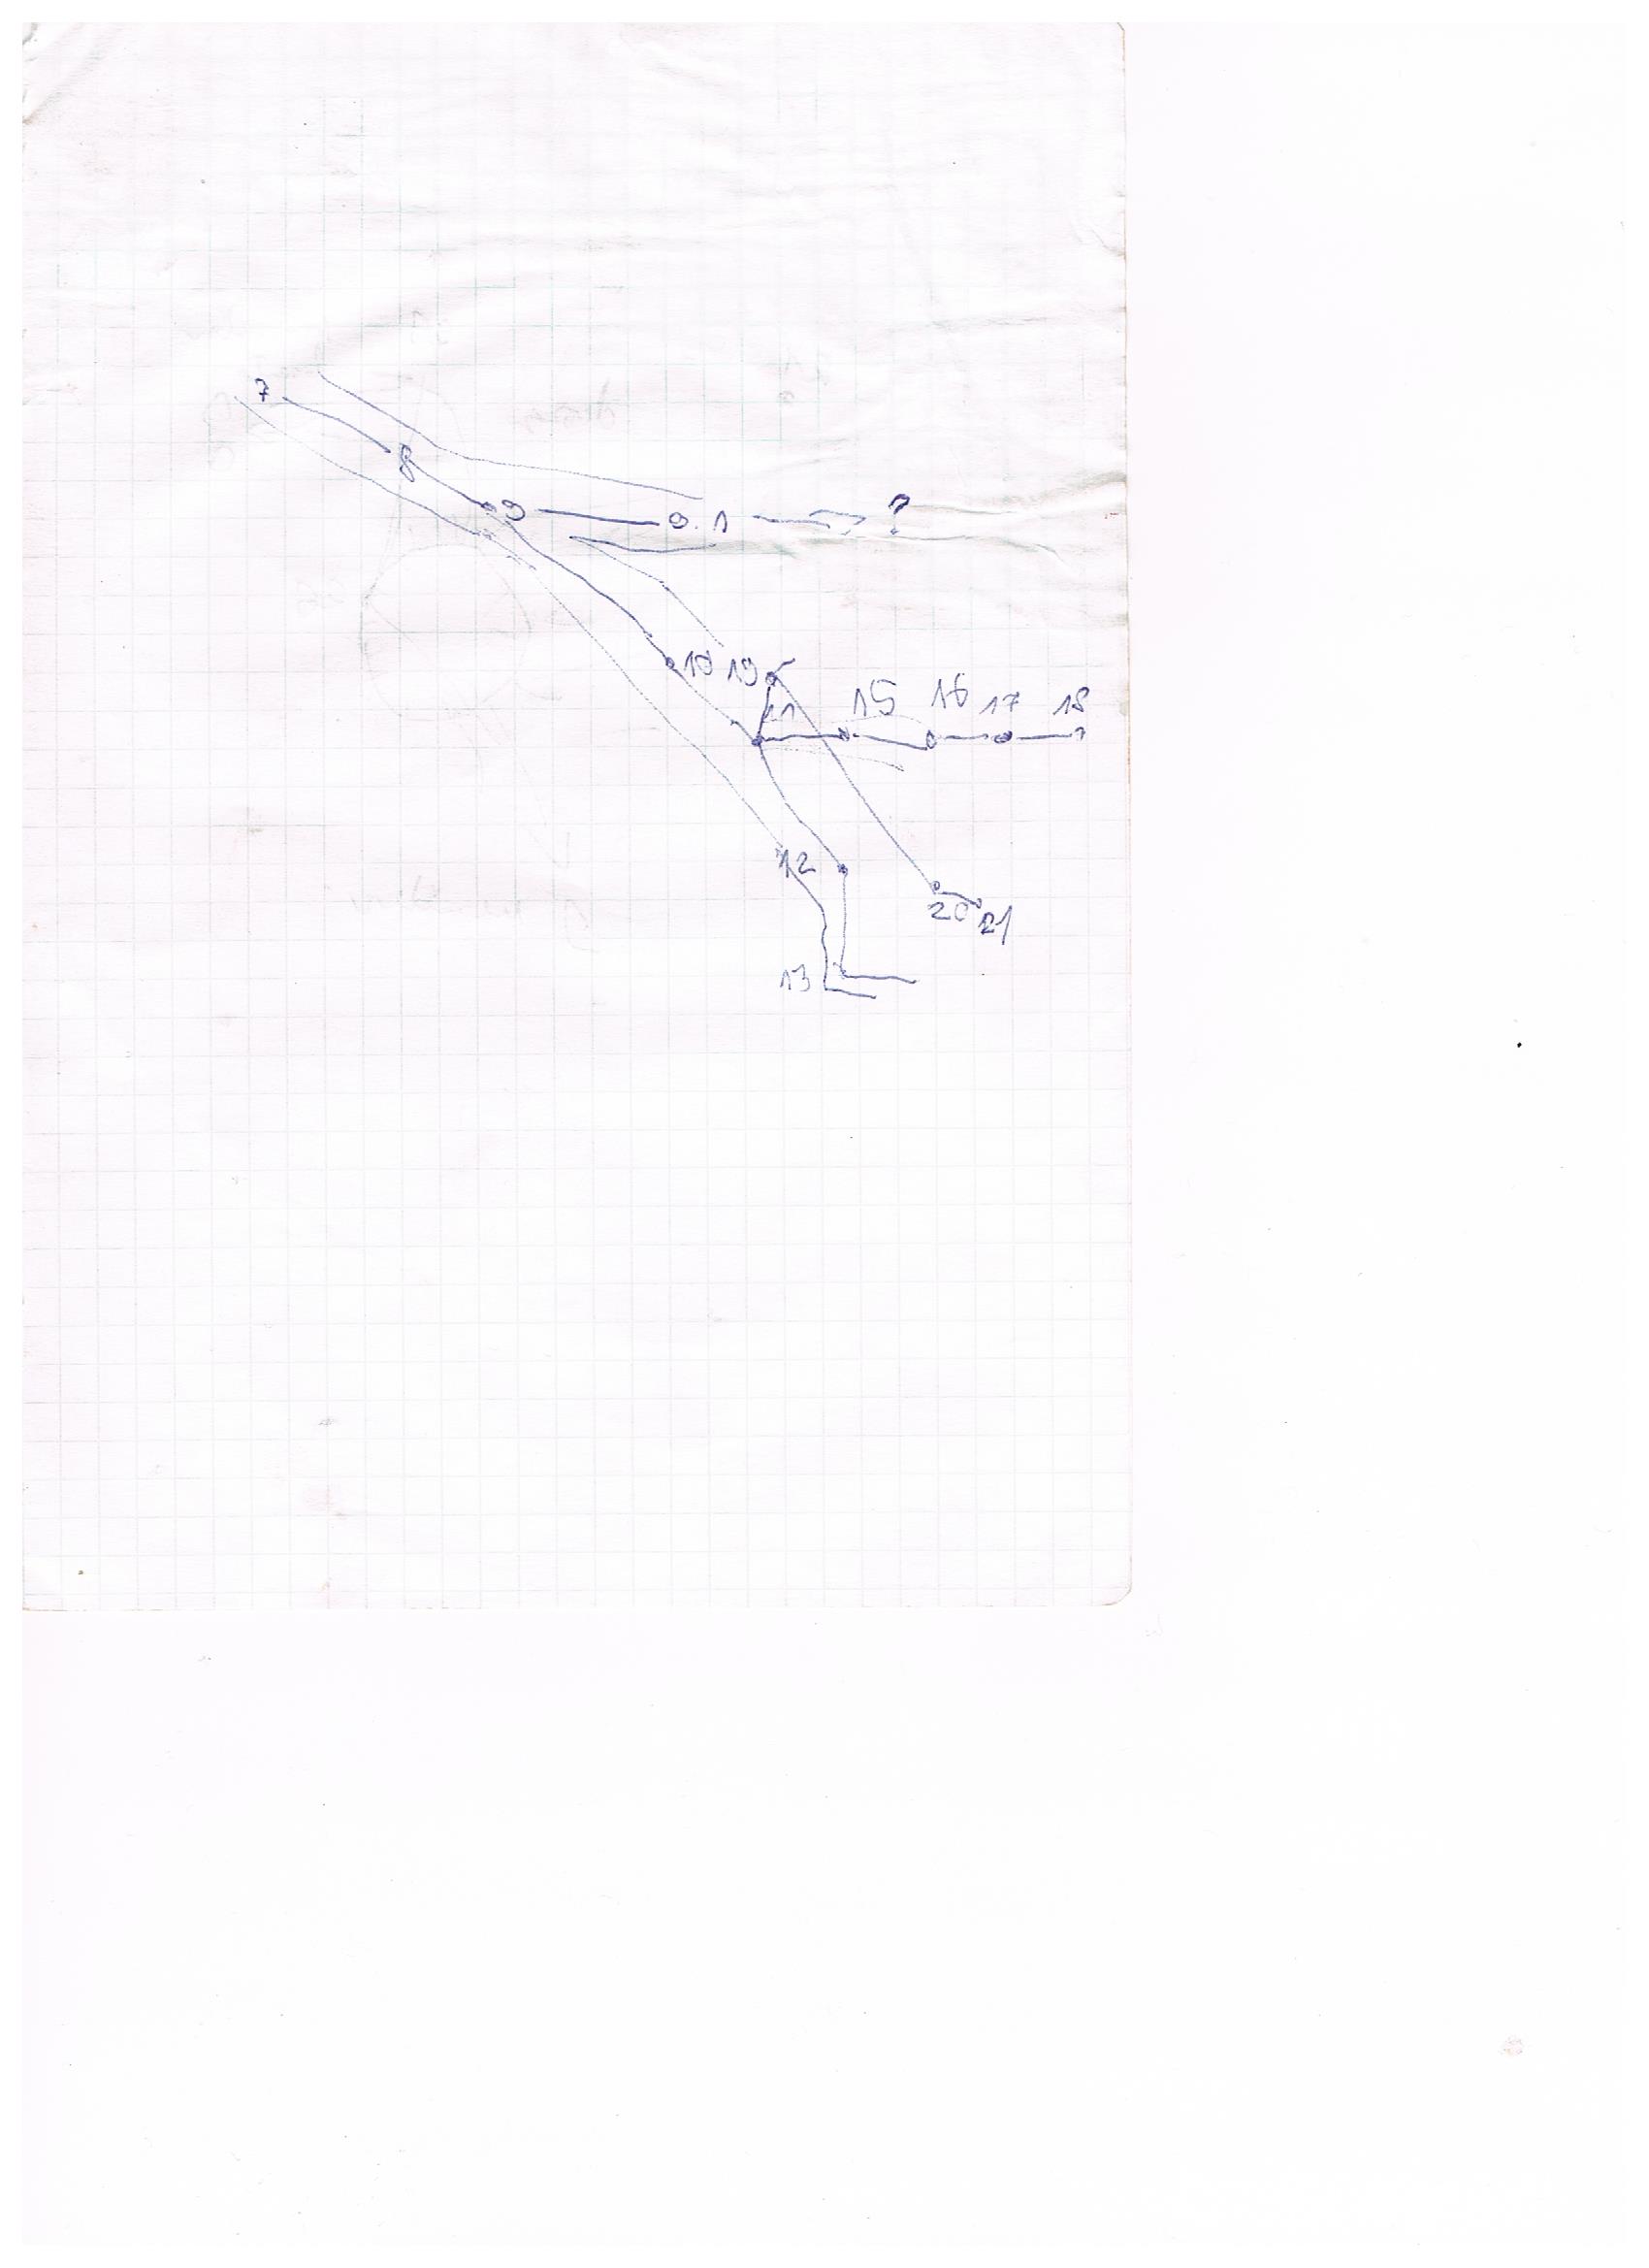 7
8
9 9.1 ?
10 19
11 15 16 17 18
12
20 21
13